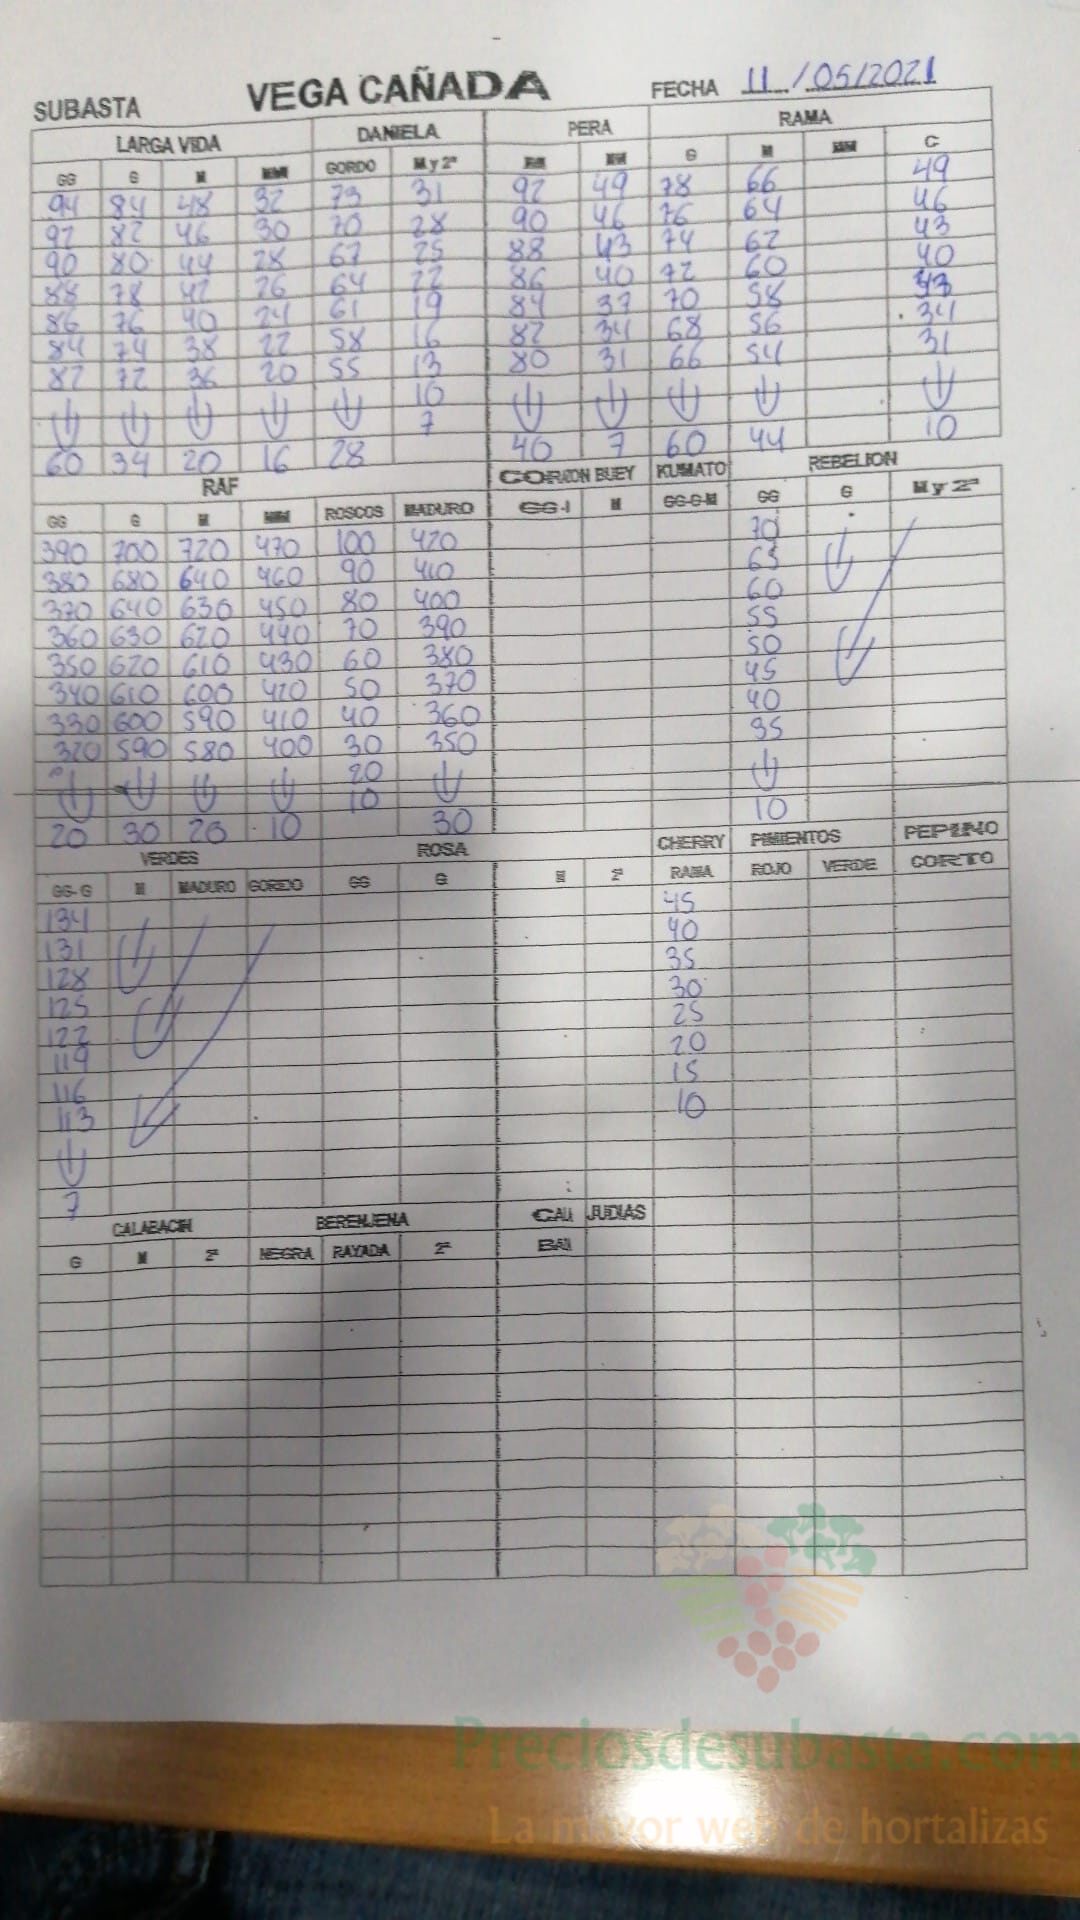 SUBASTA VEGA CAÑADA FECHA 11/05/2021
LARGA VIDA DANIELA PERA RAMA
GG G M MM GORDO M y 2ª M MM G M MM C
94 84 48 32 73 31 92 49 78 66 49
92 82 46 30 70 28 90 46 76 64 46
90 80 44 28 67 25 88 43 74 62 43
88 78 42 26 64 22 86 40 72 60 40
86 76 40 24 61 19 84 37 70 58
84 74 38 22 58 16 82 34 68 56 34
82 72 36 20 55 13 80 31 66 54 31
10
7
60 34 20 16 28 40 7 60 44 10
RAF CORAZON BUEY KUMATO REBELION
GG G M MM ROSCOS MADURO GG-1 M GG-G-M GG G M y 2ª
390 700 720 470 100 420 70
380 680 640 460 90 410 65
370 640 630 450 80 400 60
360 630 620 440 70 390 55
350 620 610 430 60 380 50
340 610 600 420 50 370 45
330 600 590 410 40 360 40
320 590 580 400 30 350 35
20
10
20 30 20 10 30 10
VERDES ROSA CHERRY PIMIENTOS PEPINO
GG-G M MADURO GORDO GG G M 2ª RAMA ROJO VERDE CORTO
134 45
131 40
128 35
125 30
122 25
119 20
116 15
113 10
7
CALABACIN BERENJENA CALI JUDIAS
G M 2ª NEGRA RAYADA 2ª BAI
Preciosdesubasta.com
La mayor web de hortalizas